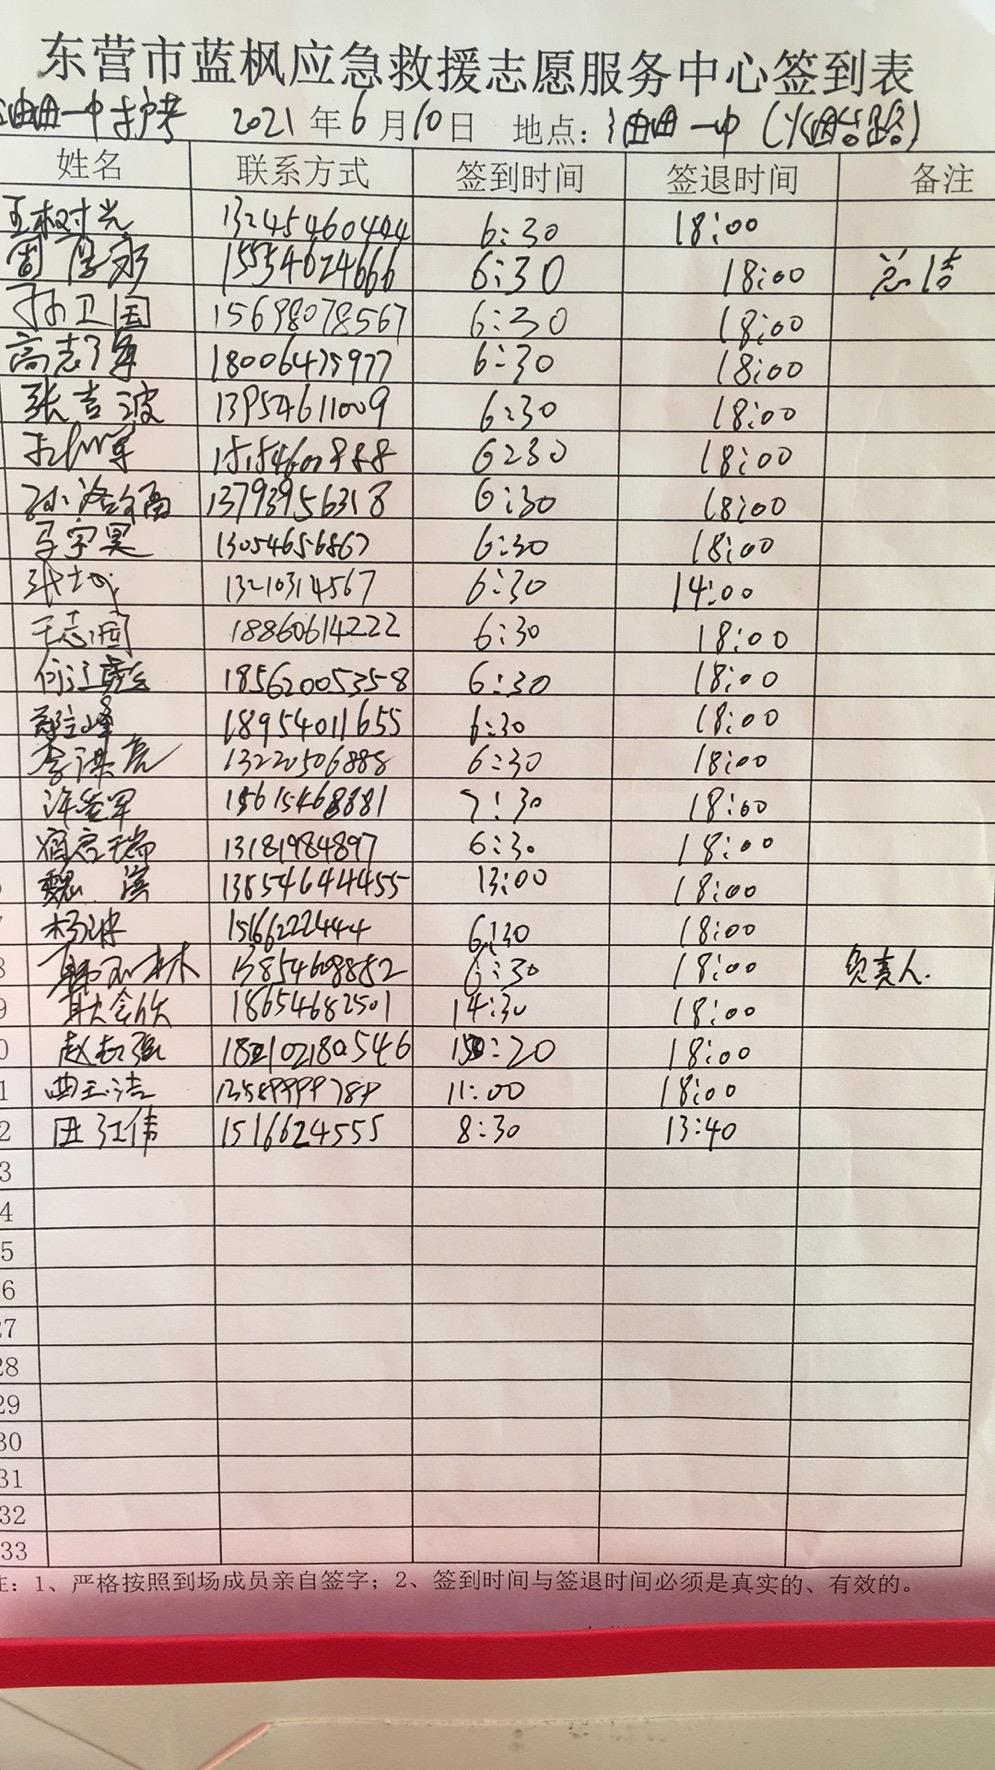 东营市蓝枫应急救援志愿服务中心签到表
油田一中护考 2021年6月10日 地点:油田一中(火炬路)
姓名 联系方式 签到时间 签退时间 备注
王树光 13245460444 6:30 18:00
周 15554624666 6:30 18:00 总结
孙卫国 15698078567 6:30 18:00
高志军 18006475977 6:30 18:00
张吉波 13954611009 6:30 18:00
6:30 18:00
孙 13793956318 6:30 18:00
马宇昊 13054656867 6:30 18:00
13210314567 6:30 14:00
王志国 18860614222 6:30 18:00
何江 18562005358 6:30 18:00
峰 18954011655 6:30 18:00
李洪亮 13220506888 6:30 18:00
许 15615468881 7:30 18:00
宿 瑞 13181984897 6:30 18:00
魏 滨 13854644455 13:00 18:00
杨琳 15662224444 6:30 18:00
8 林 13854608852 6:30 18:00 负责人.
9 耿会欣 18654682501 14:30 18:00
0 赵志强 :20 18:00
1 曲玉洁 11:00 18:00
2 田红伟 1516624555 8:30 13:40
3
4
5
6
27
28
29
30
31
32
33
注:1、严格按照到场成员亲自签字;2、签到时间与签退时间必须是真实的、有效的。